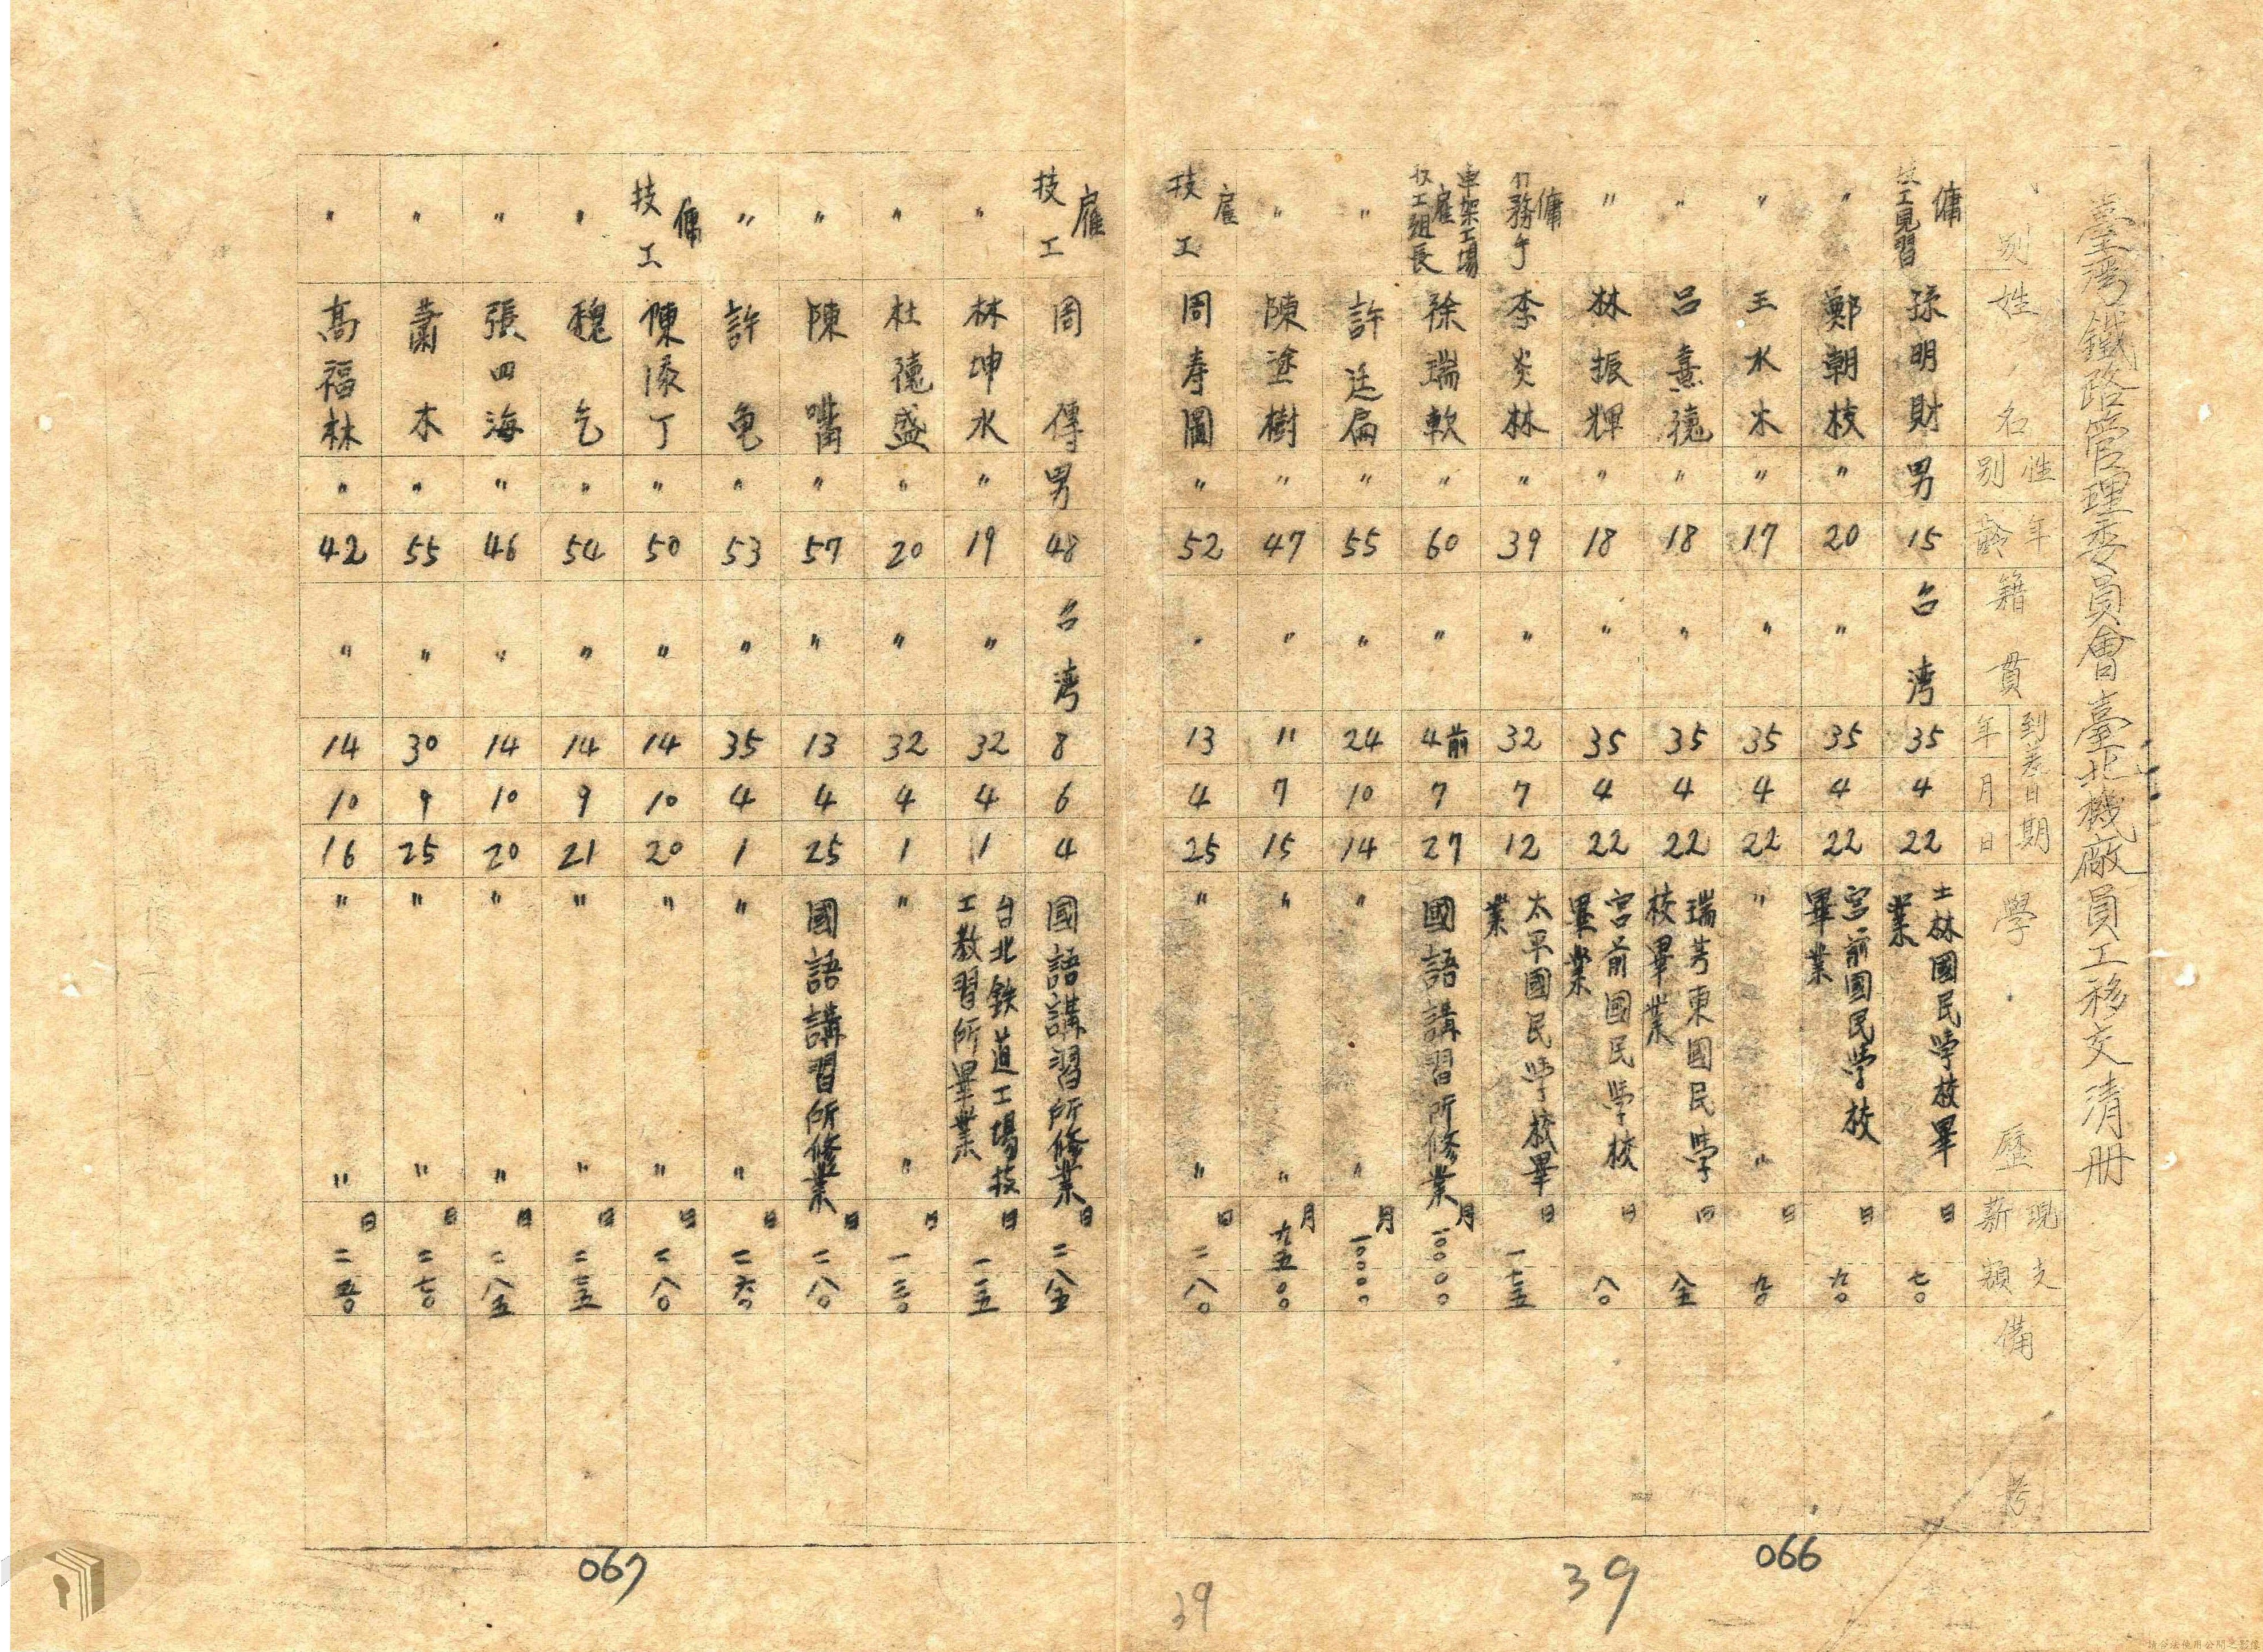 臺灣鐵路管理委員會臺北機廠員工移交清冊
別 姓名 性別 年齡 籍貫 到差日期 年月日 學歷 現支薪額 備考
傭 技工見習 孫明財 男 15 台湾 35 4 22 士林國民学校畢業 日 七〇
〃 鄭朝枝 〃 20 〃 35 4 22 宮前國民学校畢業 日 九〇
〃 王水木 〃 17 〃 35 4 22 〃 〃 日 九〇
〃 呂熹德 〃 18 〃 35 4 22 瑞芳東國民学校畢業 日 八五
〃 林振輝 〃 18 〃 35 4 22 宮前國民学校畢業 日 八〇
傭 李炎林 〃 39 〃 32 7 12 太平國民学校畢業 日 一七五
車架工場 雇 技工組長 徐瑞軟 〃 60 〃 前4 7 27 國語講習所修業 月 一〇〇〇〇
〃 許廷扁 〃 55 〃 24 10 14 〃 〃 月 一〇〇〇〇
〃 陳塗樹 〃 47 〃 11 7 15 〃 〃 月 九五〇〇
雇 技工 周寿圖 〃 52 〃 13 4 25 〃 〃 日 二八〇
066
39
39
雇 技工 周傳 男 48 台湾 8 6 4 國語講習所修業 日 二八五
〃 林坤水 〃 19 〃 32 4 1 台北鉄道工場技工教習所畢業 日 一三五
〃 杜德盛 〃 20 〃 32 4 1 〃 〃 日 一三〇
〃 陳嘴 〃 57 〃 13 4 25 國語講習所修業 日 二八〇
〃 許亀 〃 53 〃 35 4 1 〃 〃 日 二六〇
傭 技工 陳添丁 〃 50 〃 14 10 20 〃 〃 日 二八〇
〃 魏乞 〃 54 〃 14 9 21 〃 〃 日 二三五
〃 張四海 〃 46 〃 14 10 20 〃 〃 日 二八五
〃 蕭木 〃 55 〃 30 9 25 〃 〃 日 二七〇
〃 高福林 〃 42 〃 14 10 16 〃 〃 日 二五〇
067